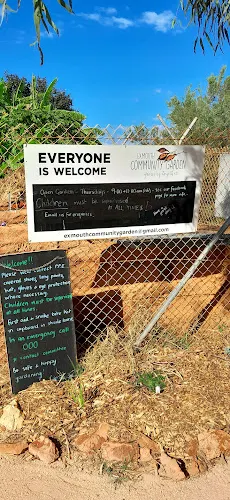 EVERYONE
IS WELCOME
EXMOUTH
COMMUNITY GARDEN
Open Garden: Thursdays
Children must be
at ALL TIMES!
Email us for
exmouthcommunitygarden@gmail.com
Welcome!!
Please wear correct PPE
covered shoes, long pants,
hats, gloves & eye protection
where necessary.
Children must be supervised
at all times.
First aid & snake bite kit
in cupboard in shade
In an emergency call
000
& contact committee
Be safe & happy
gardening